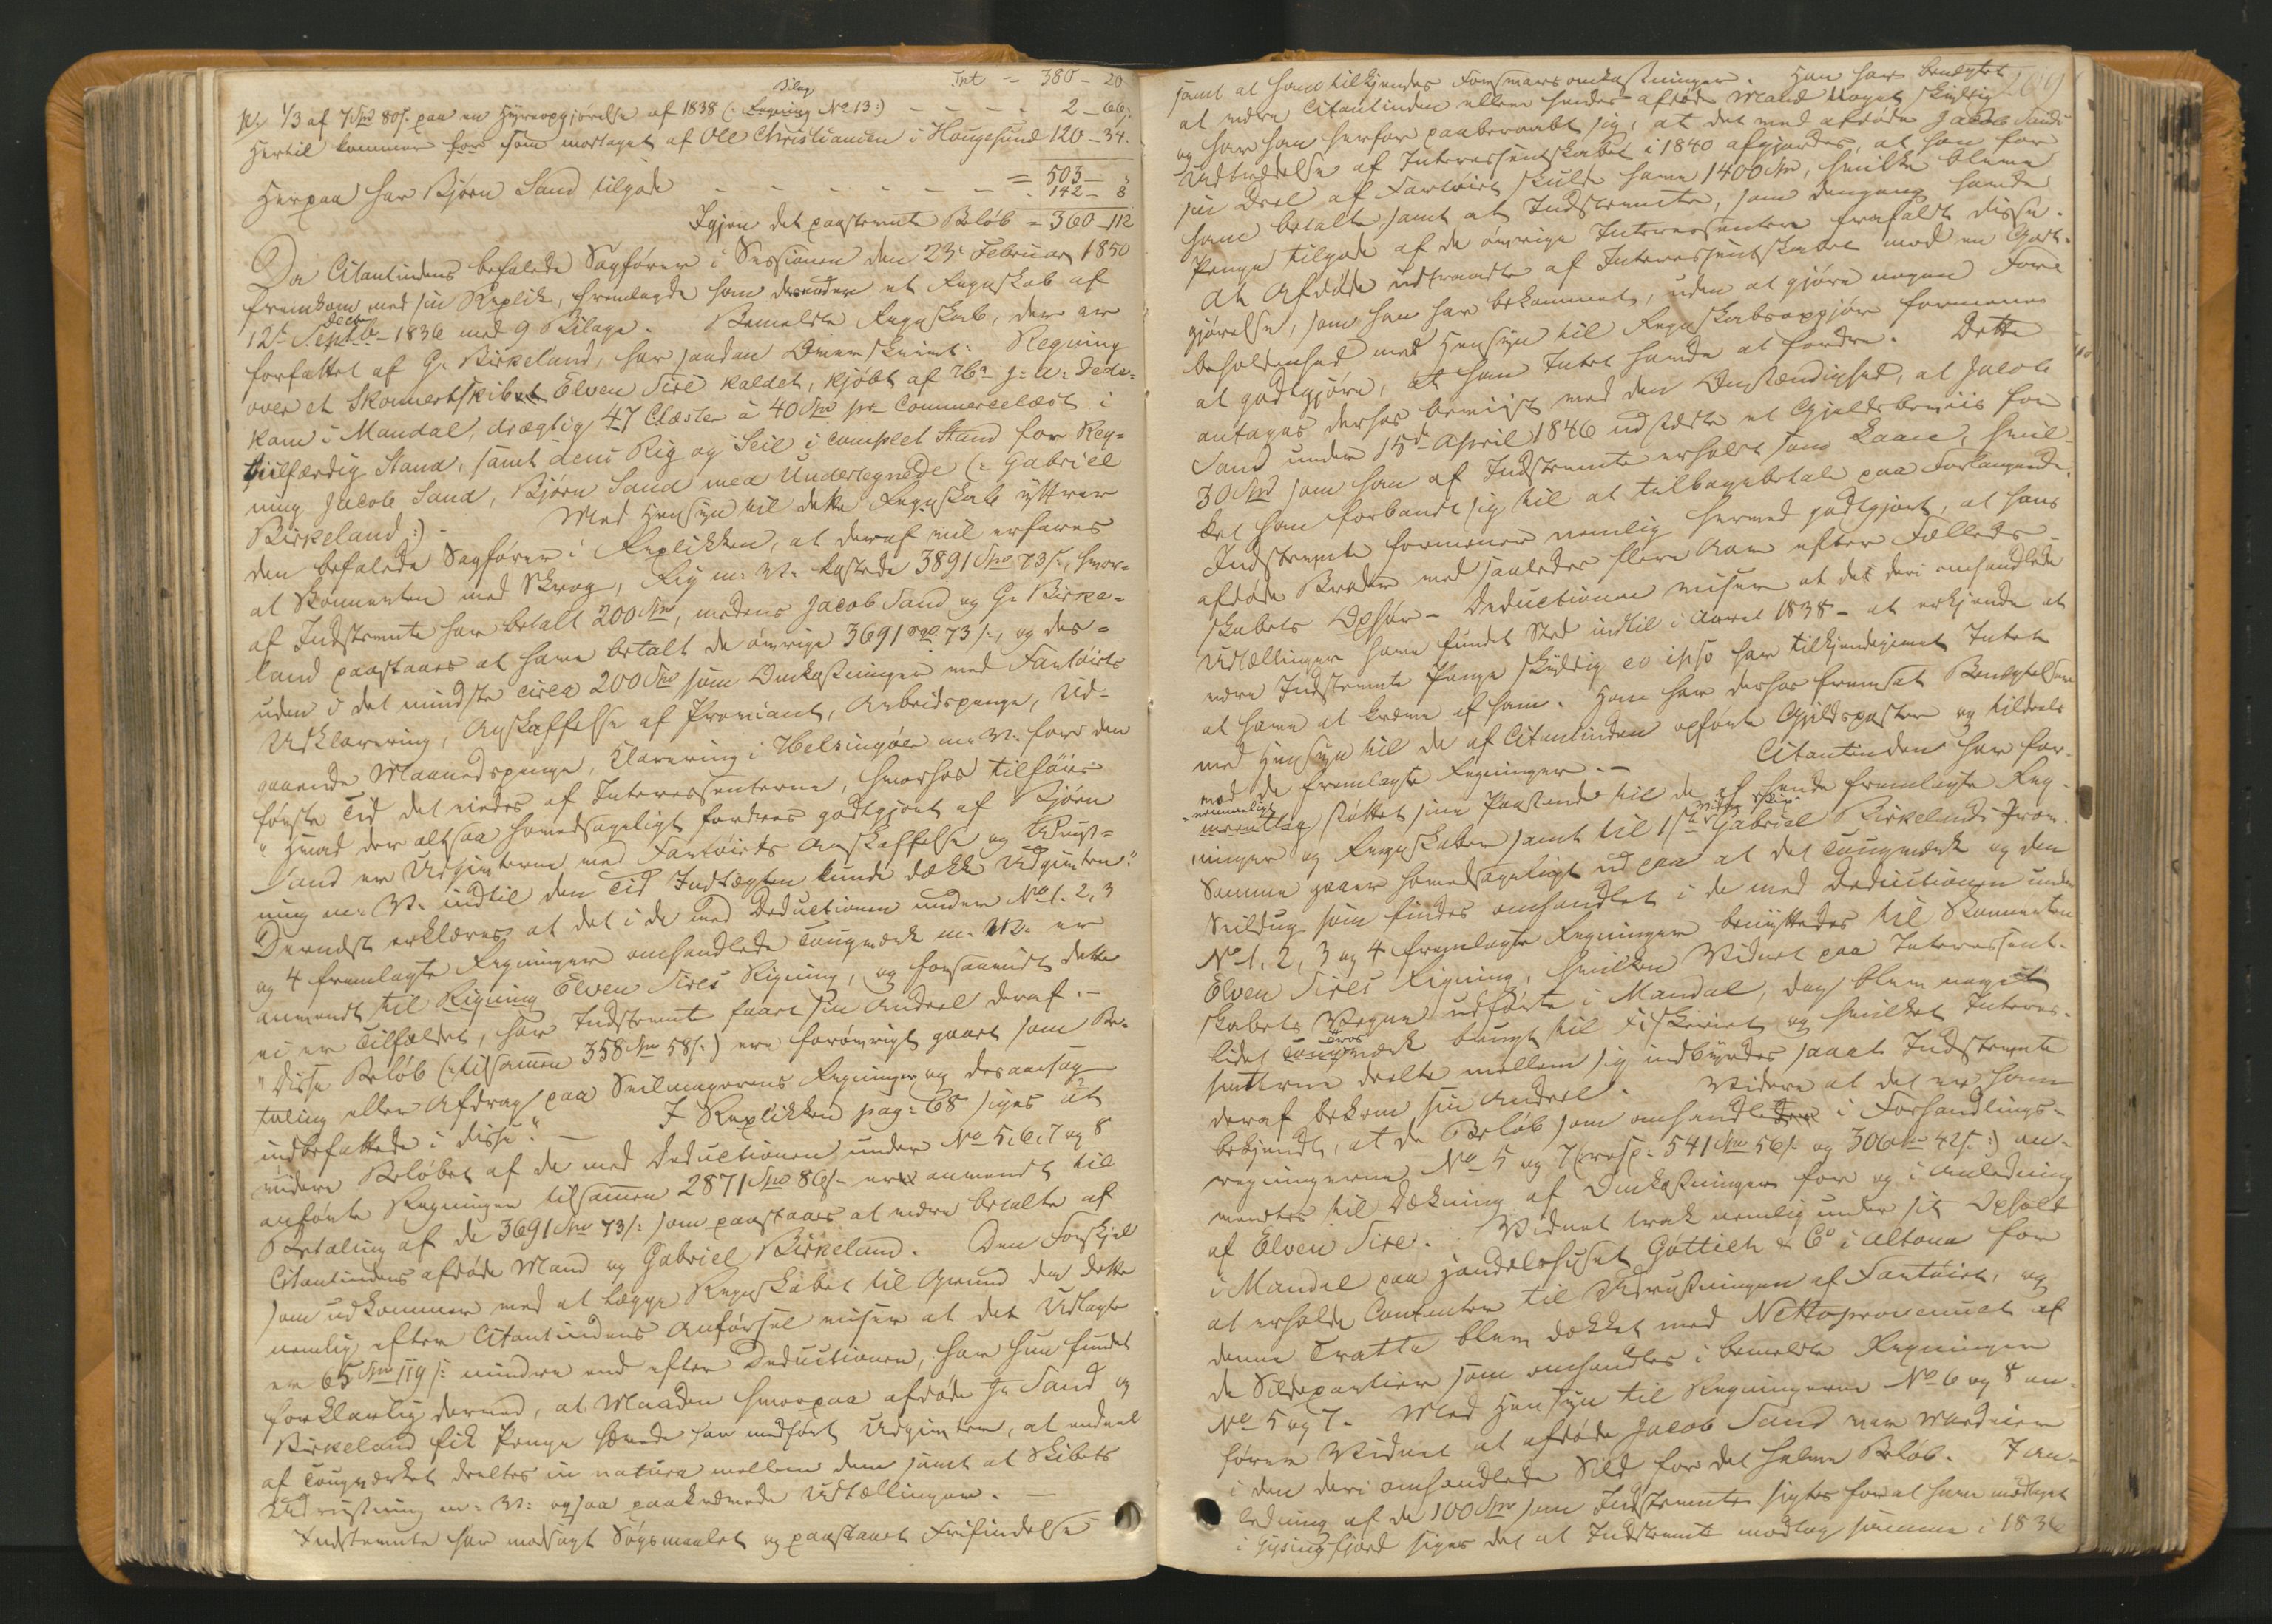 Trt = 380 - 20
Bilag
pr 1/3 af 7 Spd 80 s. paa en Hyreopgjørelse af 1838 (: Regning No 13 :) - - - - 2 - 66.
Hertil kommer for som modtaget af Ole Christiansen i Hougesund 120 - 34.
= 503 -
Herpaa har Bjørn Sand tilgode - - - - - - - 142 - 8
Igjen det paastævnte Beløb = 360 - 112
Da Citantindens befalede Sagfører i Sessionen den 23de Februar 1850
fremkom med sin Replik, fremlagde han derunder et Regnskab af
Decbr
12te Septb 1836 med 9 Bilage. Bemeldte Regnskab, der er
forfattet af G. Birkeland, har saadan Overskrivt: Regning
over et Skonnertskibet Elven Sire kaldet, kjøbt af Hr. J. A. Dede-
kam i Mandal, drægtig 47 Clæster à 40 Spd pr Commercelæst i
Fiilfærdig Stand, samt dens Rig og Seil i complet Stand for Reg-
ning Jacob Sand, Bjørn Sand med Undertegnede (: Gabriel
Birkeland :) - Med Hensyn til dette Regnskab yttrer
den befalede Sagfører i Replikken, at deraf vil erfares
at Skonnerten med Skrog, Rig m. V. kostede 3891 Spd 73 s., hvor-
af Indstevnte har betalt 200 Spd, medens Jacob Sand og G. Birke-
land paastaaes at have betalt de øvrige 3691 Spd 73 s., og des-
uden i det mindste circa 200 Spd som Omkostninger med Fartøiets
Udklarering, Anskaffelse af Proviant, Arbeidspenge, Ud-
gaaende Maanedspenge, Klarering i Helsingøer m. V. for den
første Tid det eiedes af Interessenterne, hvorhos tilføies
"Hvad der altsaa hovedsageligt fordres godtgjort af Bjørn
Sand er Udgivterne med Fartøiets Anskaffelse og Udrust-
ning m. V. indtil den Tid Indtægten kunde dække Udgivten."
Dernæst erklæres at det i de med Deductionen under No 1. 2, 3
og 4 fremlagte Regninger omhandlede Tougværk m. V. er
anvendt til Rigning Elven Sires Rigning, og forsaavidt dette
ei er Tilfældet, har Indstevnte faaet sin Andeel deraf. -
"Disse Beløb (: tilsammen 358 Spd 58 s. :) ere forøvrigt gaaet som Be-
taling eller Afdrag paa Seilmagerens Regninger og desaarsag
indbefattede i disse." - I Replikken pag: 68 siges at
videre Beløbet af de med Deductionen under No 5, 6, 7 og 8
anførte Regninger tilsammen 2871 Spd 86 s. er anvendt til
Betaling af de 3691 Spd 73 s. som paastaaes at være betalte af
Citantindens afdøde Mand og Gabriel Birkeland. Den Forskjel
som udkommer med at lægge Regnskabet til Grund da dette
nemlig efter Citantindens Anførsel viser at det Udlagte
er 65 Spd 119 s. mindre end efter Deductionen, har hun fundet
forklarlig derved, at Maaden hvorpaa afdøde J. Sand og
Birkeland fik Penge havde har medført Udgivter, at endeel
af Tougværket deeltes in natura mellem dem samt at Skibets
Udrustning m. V. ogsaa paakrævede Udtællinger. -
Indstevnte har modsagt Søgsmaalet og paastaaet Frifindelse
269
samt at ham tilkjendes Forsvars omkostninger. Han har benægtet
at være Citantinden eller hendes afdøde Mand Noget skyldig
og har han herfor paaberaabt sig, at det med afdøde Jacob Sands
Udtrædelse af Interessentskabet i 1840 afgjordes, at han for
sin Deel af Fartøiet skulde have 1400 Spd, hvilke bleve
ham betalte, samt at Indstevnte, som dengang havde
Penge tilgode af de øvrige Interessentere frafaldt disse.
At Afdøde udtraadte af Interessentskabet mod en Godt-
gjørelse, som han har bekommet, uden at gjøre nogen For-
beholdenhed med Hensyn til Regnskabsopgjør formenes
at godtgjøre, at han Intet havde at fordre. Dette
antages derhos beviist med den Omstændighed, at Jacob
Sand under 15de April 1846 udstedte et Gjeldsbeviis for
30 Spd som han af Indstevnte erholdt som Laan, hvil-
ket han forbandt sig til at tilbagebetale paa Forlangende.
Indstevnte formener nemlig hermed godtgjort, at hans
afdøde Broder ved saaledes flere Aar efter Fælleds-
skabets Ophør - Deductionen viser at det deri omhandlede
Udtællinger have fundet Sted indtil i Aaret 1838 - at erkjende at
være Indstevnte Penge skyldig eo ipso har tilkjendegivet Intet
at have at kræve af ham. Han har derhos fremsat Benægtelser
med Hensyn til de af Citantinden opførte Gjeldsposter og tildeels
mod de fremlagte Regninger. - Citantinden har for-
nemmeligt
støttet sin Paastand til de af hende fremlagte Reg-
ninger og Regnskaber samt til 1ste Vidne Gabriel Birkelands Forn.
Samme gaaer hovedsageligt ud paa at det Tougværk og den
Seildug som findes omhandlet i de med Deductionen under
No 1, 2, 3 og 4 fremlagte Regninger benyttedes til Skonnerten
Elven Sires Rigning, hvilken Vidnet paa Interessent-
skabets Vegne udførte i Mandal, dog blev noget
lidet Tougværk brugt til Fiskeriet og hvilket Interes-
senterne deelte mellem sig indbyrdes saaat Indstevnte
deraf bekom sin Andeel. Videre at det er ham
bekjendt, at de Beløb som omhandlede i Forhandlings-
regningerne No 5 og 7 (: resp: 541 Spd 56 s. og 306 Spd 42 s. :) an-
vendtes til Dækning af Omkostninger for og i Anledning
af Elven Sire. Vidnet trak nemlig under sit Ophold
i Mandal paa Handelshuset Gøttich & Co i Altona for
at erholde Contanter til Udrustningen af Fartøiet, og
denne Tratte blev dækket med Nettoprovenuet af
de Sildepartier som omhandles i bemeldte Regninger
No 5 og 7. Med Hensyn til Regningerne No 6 og 8 an-
fører Vidnet at afdøde Jacob Sand var Medeier
i den deri omhandlede Sild for det halve Beløb. I An-
ledning af de 100 Spd som Indstevnte sigtes for at have modtaget
i siges det at Indstevnte modtog samme i 1836